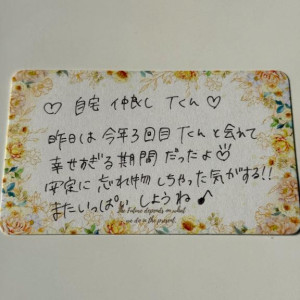 ♡ 自宅 仲良し Tくん ♡
昨日は 今年3回目 Tくんと会れて
幸せすぎる期間だったよ♡
安定に 忘れ物しちゃった気がする!!
またいっぱいしようね♪
The Future depends on what
we do in the present.